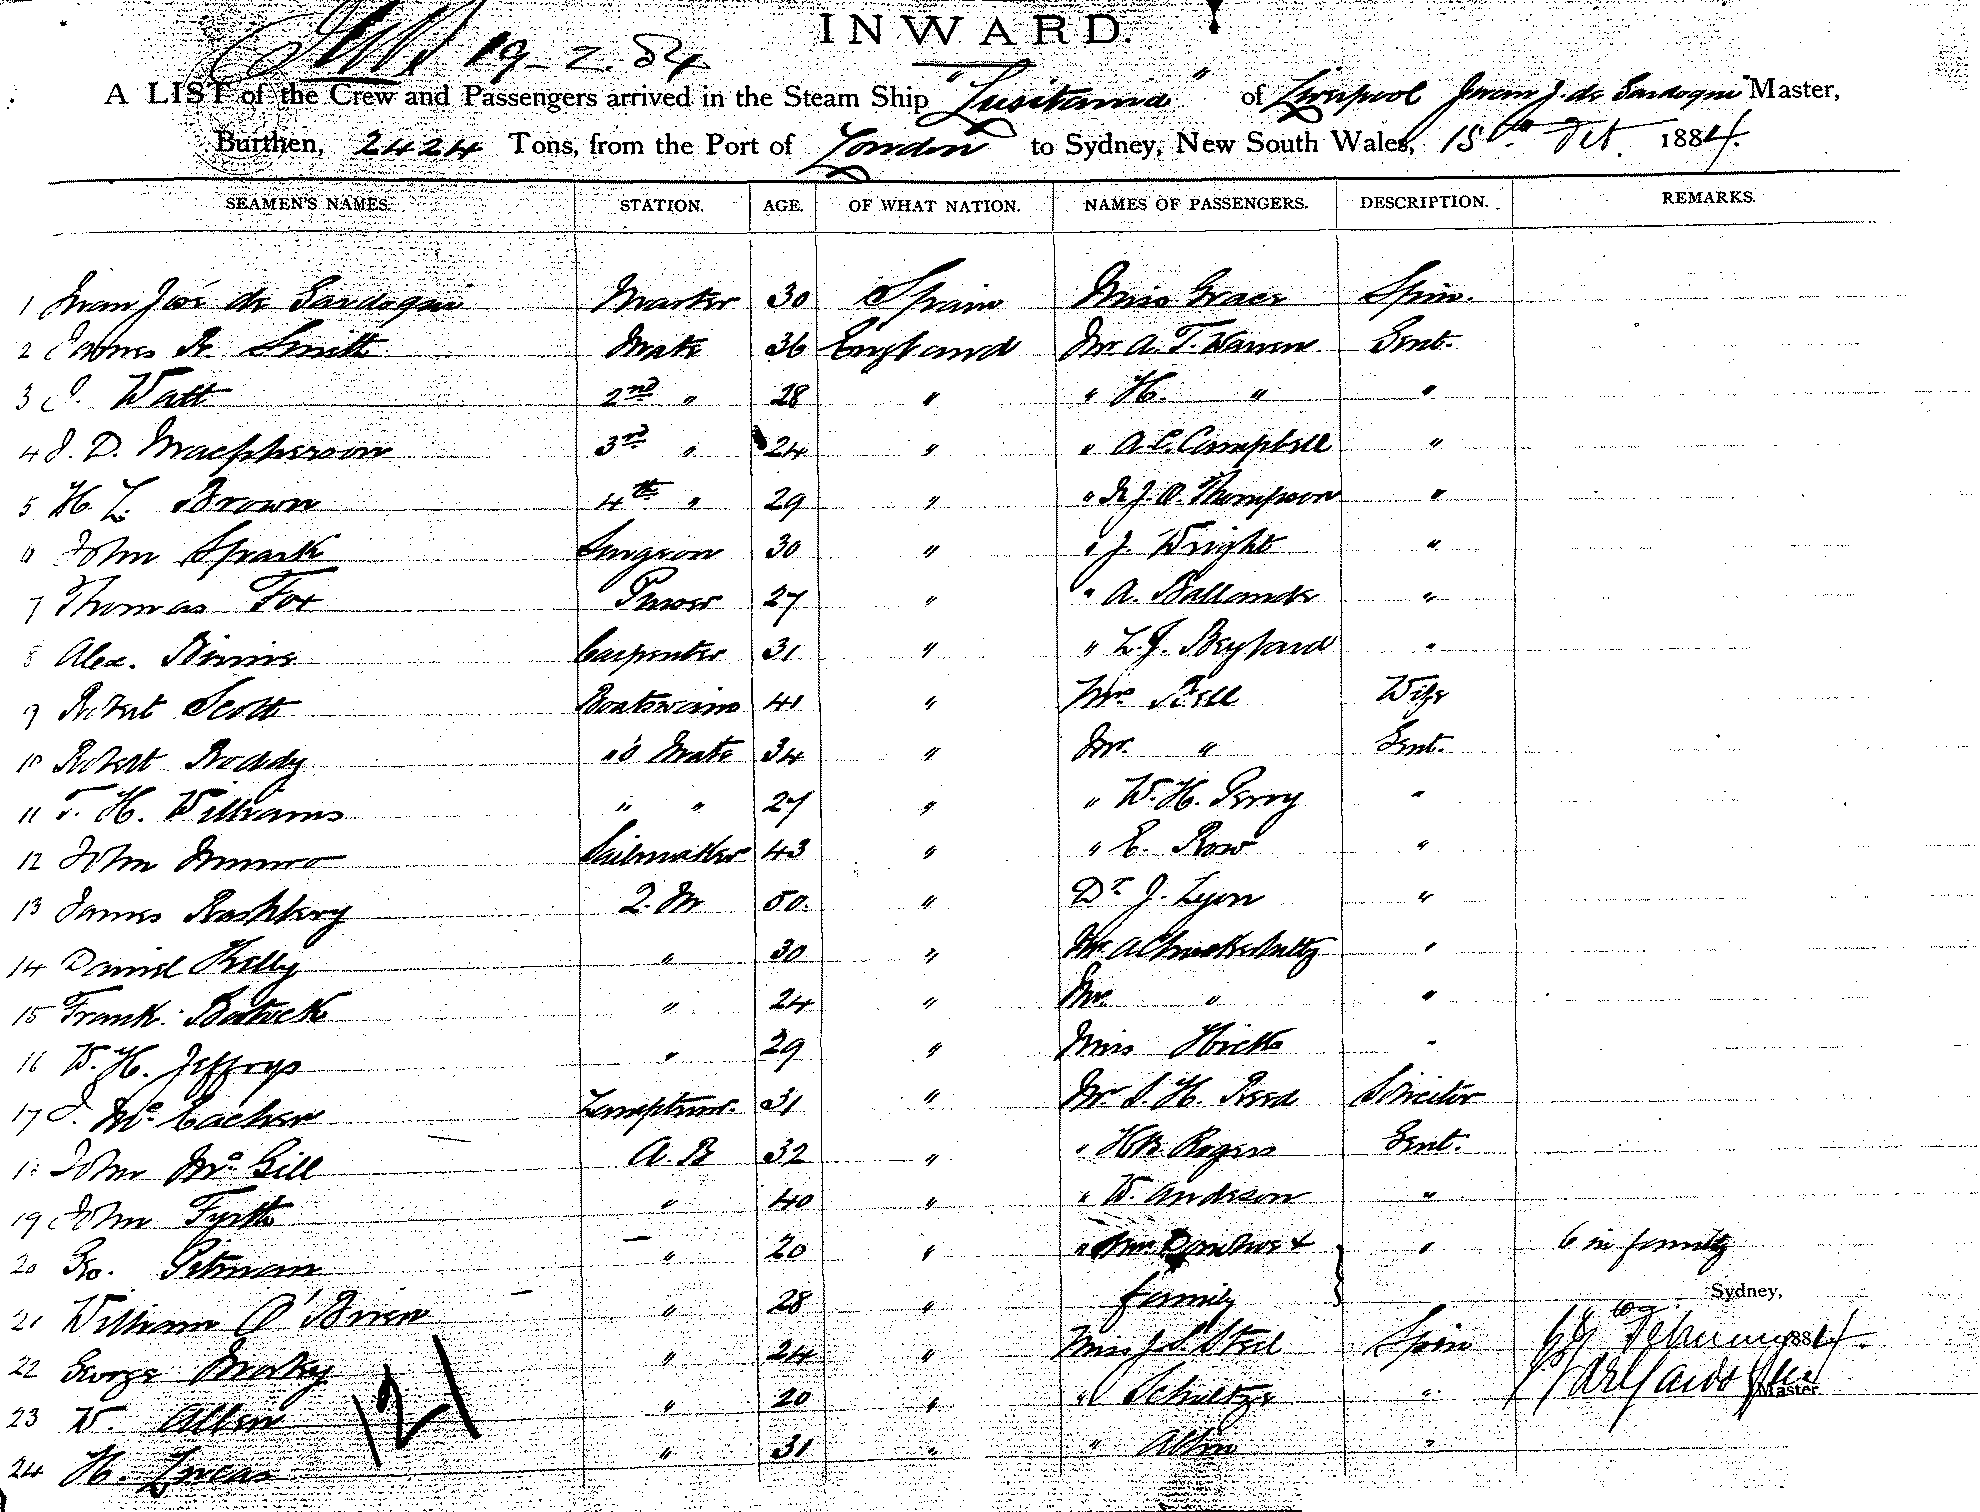 INWARD.
19-2.84
A LIST of the Crew and Passengers arrived in the Steam Ship "Lusitania" of Liverpool Juan J. de Sardoqui Master,
Burthen, 2424 Tons, from the Port of London to Sydney, New South Wales, 18th Feb. 1884.
SEAMEN'S NAMES. STATION. AGE. OF WHAT NATION. NAMES OF PASSENGERS. DESCRIPTION. REMARKS.
1 Juan José de Sardoqui Master 30 Spain Miss Grace Spin.
2 James R. Smith Mate 36 England Mr. A. T. Warren Gent.
3 J. Watt 2nd " 28 " " H. " "
4 J. D. Macpherson 3rd " 24 " " A. C. Campbell "
5 H. L. Brown 4th " 29 " " R. J. O. Thompson "
6 John Spark Surgeon 30 " " J. Wright "
7 Thomas Fox Purser 27 " " A. "
8 Alex. Binnie Carpenter 31 " " L. J. "
9 Robert Scott Boatswain 41 " Mrs Bell Wife
10 Robert Roddy "s Mate 34 " Mr. " Gent.
11 T. H. Williams " " 27 " " W. H. Perry "
12 John Munro Sailmaker 43 " " E. Row "
13 James Q. M 50 " Dr J. Lyon "
14 Daniel Kelly " 30 " Mr. "
15 Frank " 24 " Mr. " "
16 W. H. Jeffrys " 29 " Miss Hick "
17 J. McEacher Lamptrimr. 31 " Mr. S. H. Reed Solicitor
18 John McGill A. B 32 " " H B Rogers Gent.
19 John " 40 " " W. Anderson "
20 Geo. Pitman " 20 " " & " 6 in family
21 William O'Brien " 28 " family
Sydney,
22 George " 24 " Miss J. S. Steel Spin 19th February 1884.
23 W. Allen " 20 " " Schultze "
Master.
24 H. Lucas " 31 " " "
121